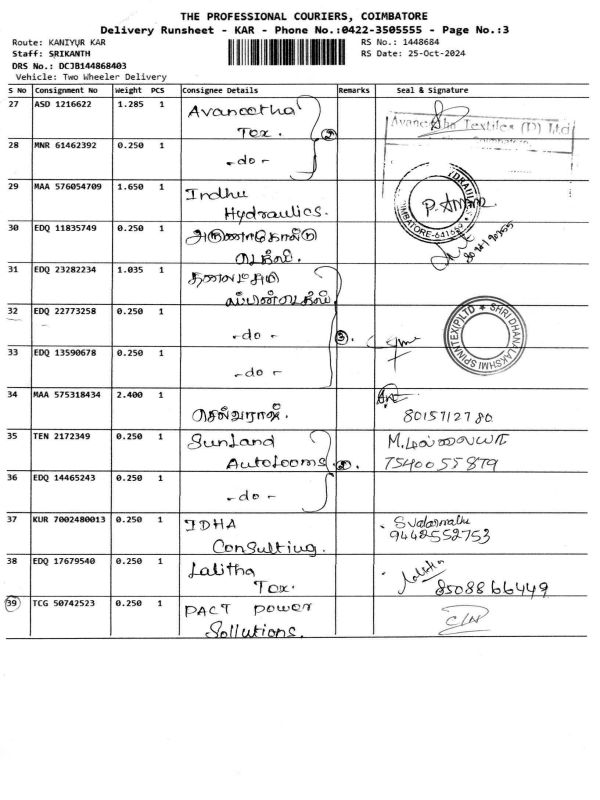 THE PROFESSIONAL COURIERS, COIMBATORE
Delivery Runsheet - KAR - Phone No.:0422-3505555 - Page No.:3
Route: KANIYUR KAR RS No.: 1448684
Staff: SRIKANTH RS Date: 25-Oct-2024
DRS No.: DCJB144868403
Vehicle: Two Wheeler Delivery
S No Consignment No Weight PCS Consignee Details Remarks Seal & Signature
27 ASD 1216622 1.285 1 Avaneetha
Tex. 2
28 MNR 61462392 0.250 1 -do-
29 MAA 576054709 1.650 1 Indhu
Hydraulics.
30 EDQ 11835749 0.250 1
31 EDQ 23282234 1.035 1
32 EDQ 22773258 0.250 1 -do- 3.
33 EDQ 13590678 0.250 1 -do-
SHRI DHANALAKSHMI SPINATEX (P) LTD
34 MAA 575318434 2.400 1 செல்வராஜ்.
8015712780
35 TEN 2172349 0.250 1 Sunland
Autolooms 2.
7540055879
36 EDQ 14465243 0.250 1 -do-
37 KUR 7002480013 0.250 1 IDHA
Consulting.
9442552753
38 EDQ 17679540 0.250 1 Lalitha
Tex. 8508866449
39 TCG 50742523 0.250 1 PACT Power
Sollutions. C/N